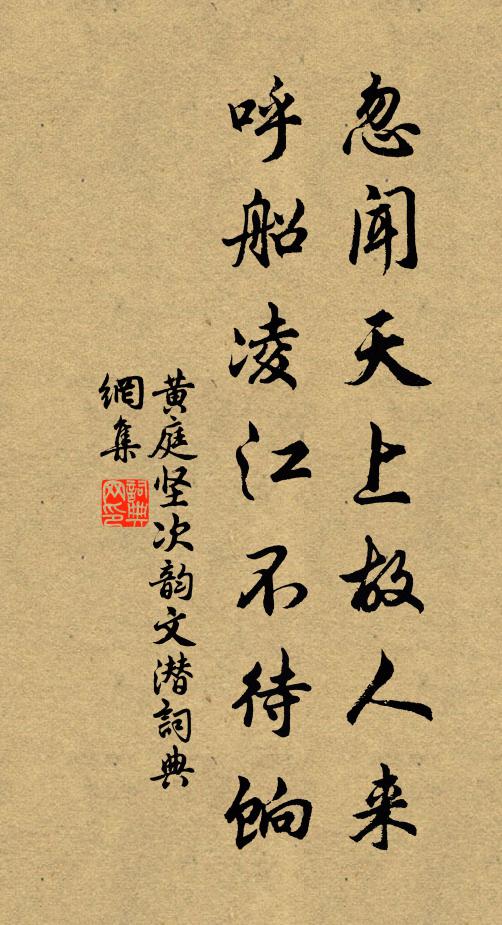 忽闻天上故人来
呼船凌江不待饷
黄庭坚次韵文潜詞典
網集
詞典
网印